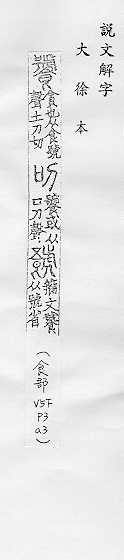 說文解字
大徐本
饕
貪也从食號
聲土刀切
叨
饕或从
口刀聲
籀文饕
从號省
(食部
V5下
P3
a3)